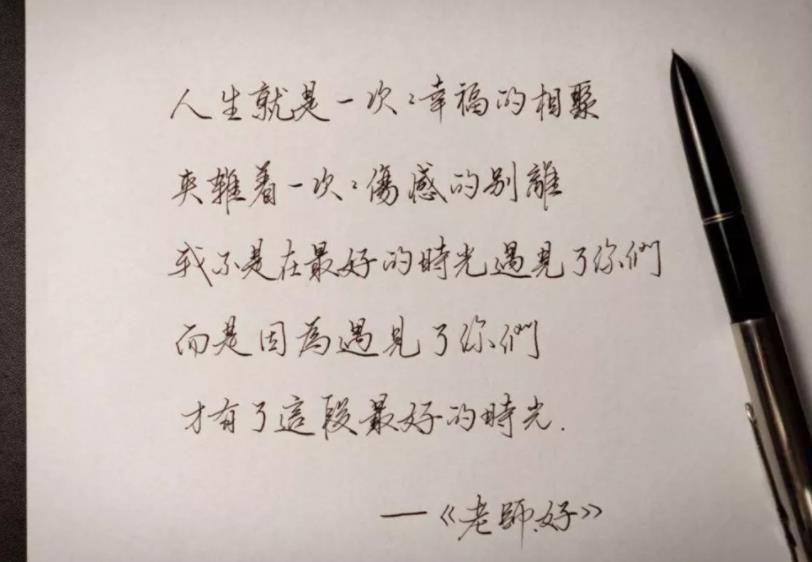 人生就是一次〻幸福的相聚
夾雜着一次〻傷感的别離
我不是在最好的時光遇見了你們
而是因為遇見了你們
才有了這段最好的時光.
—《老師好》